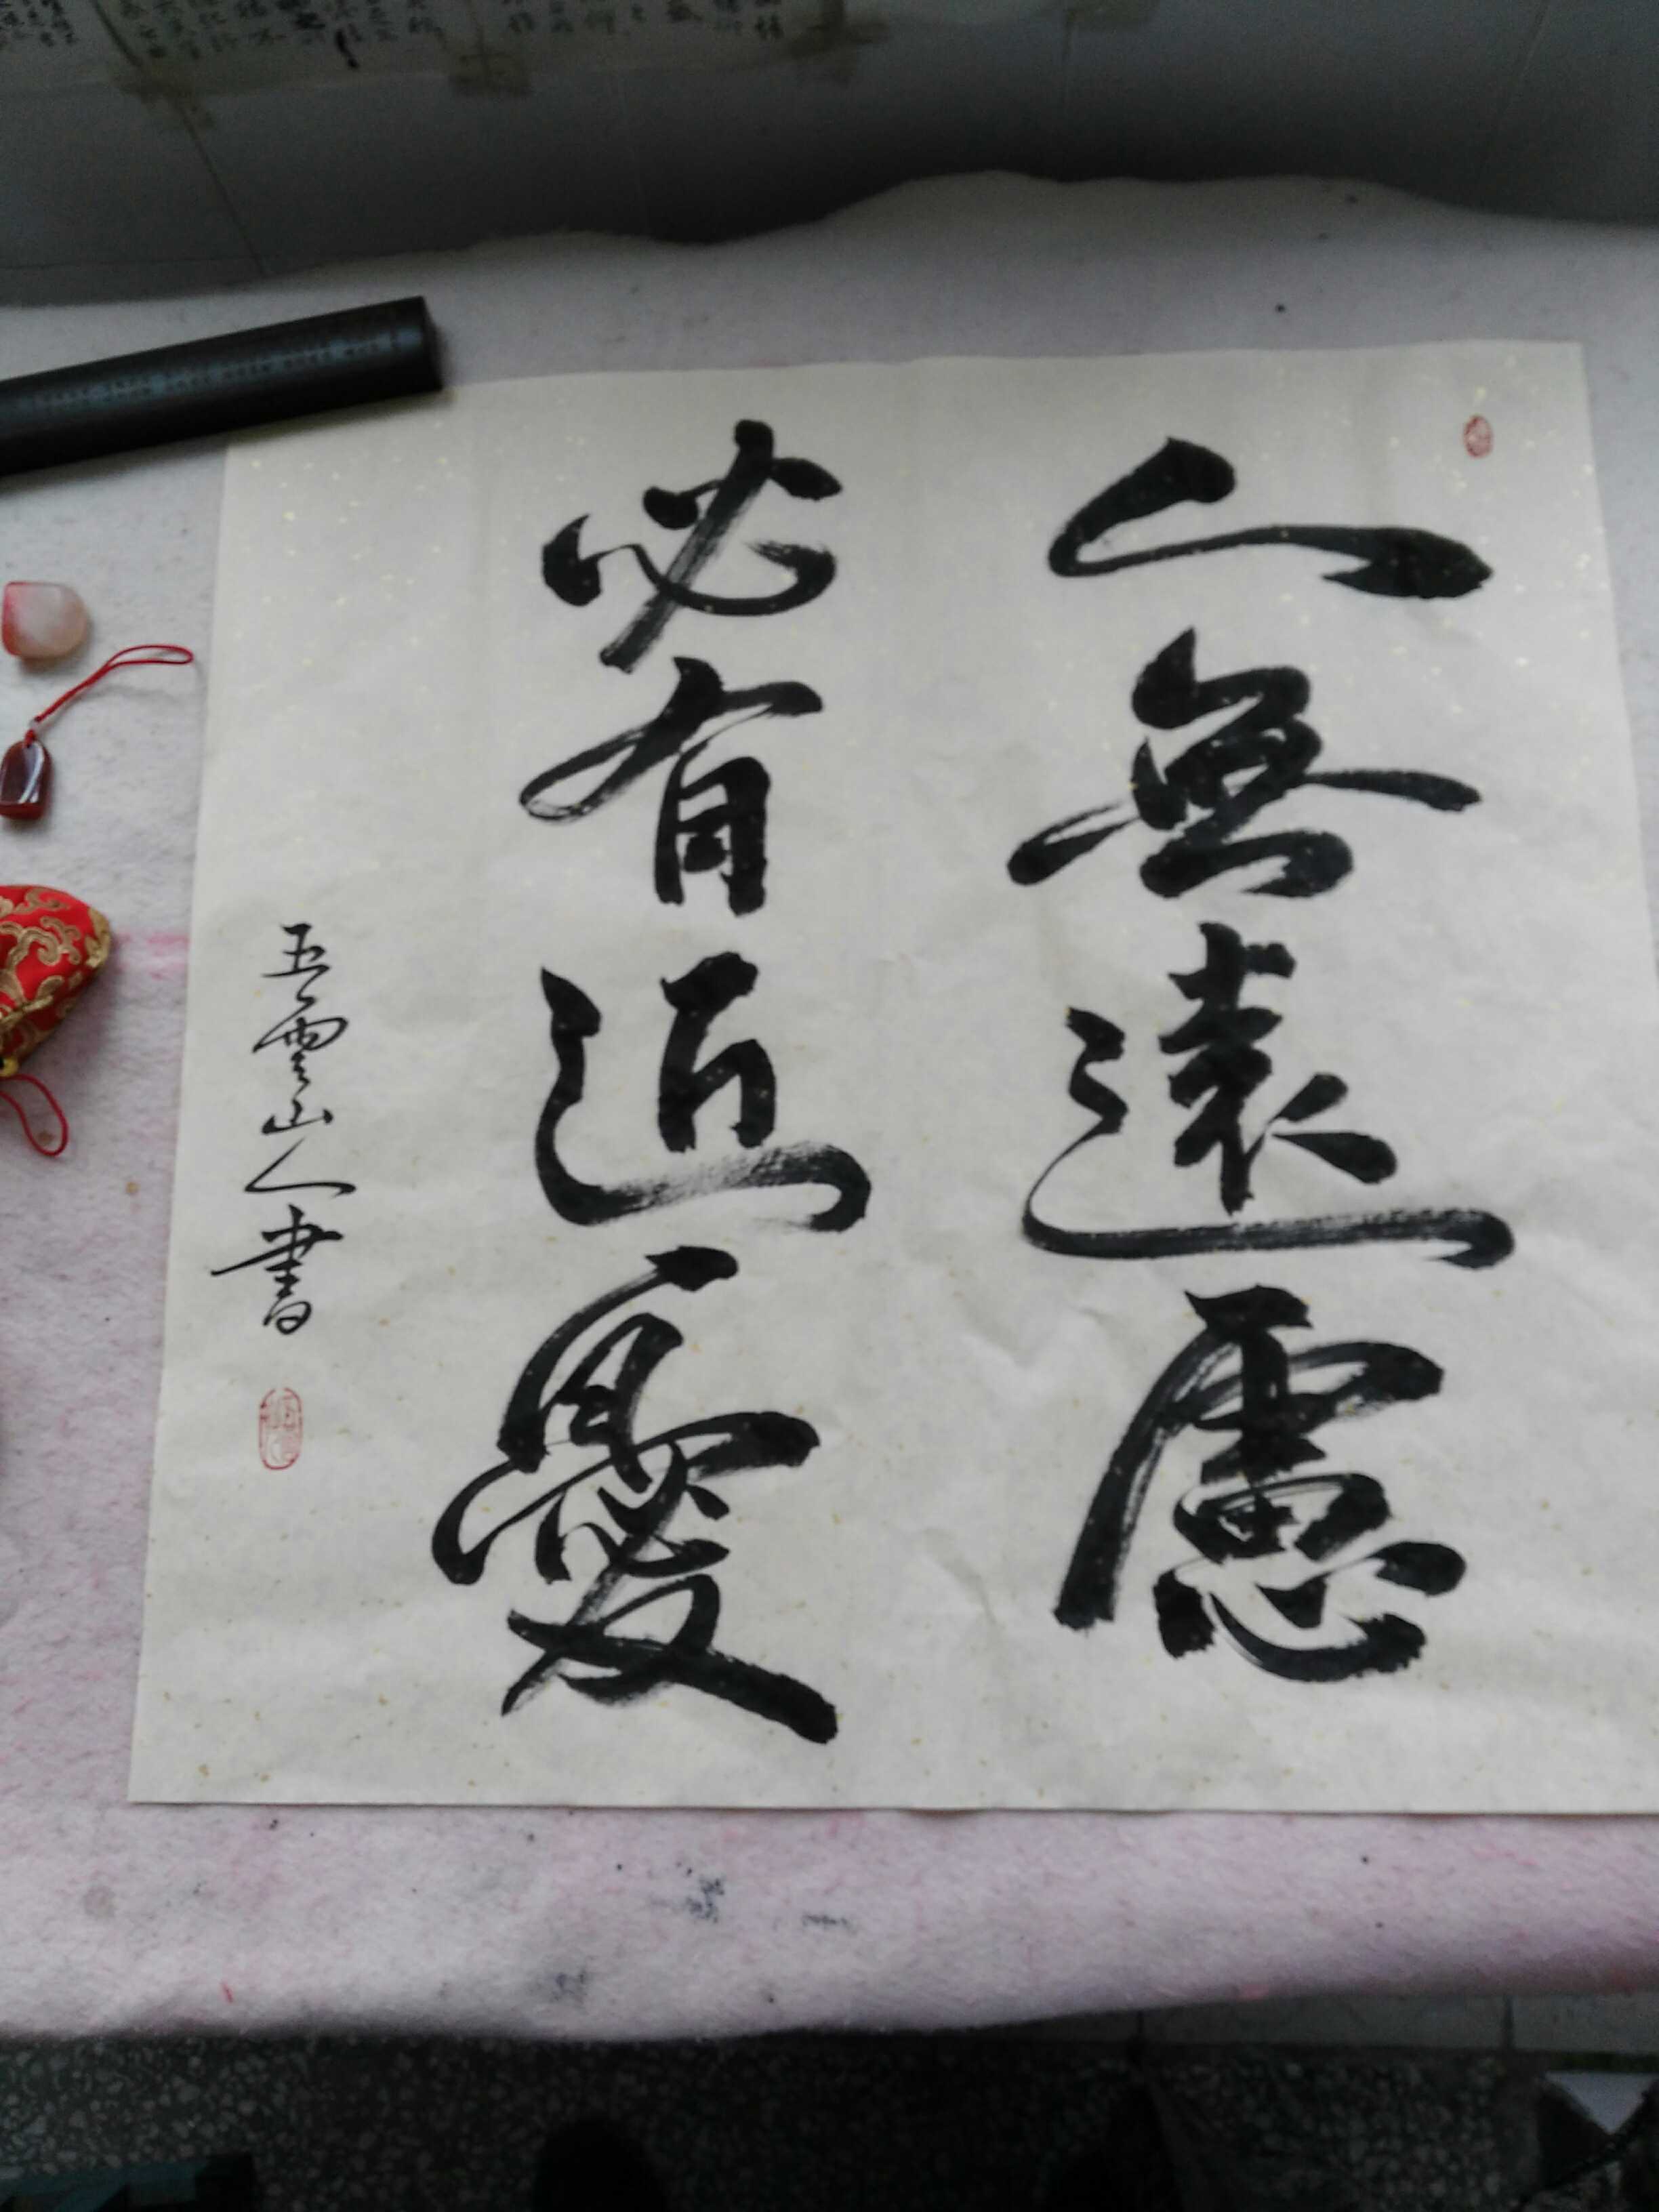 人無遠慮
必有近憂
五雲山人書